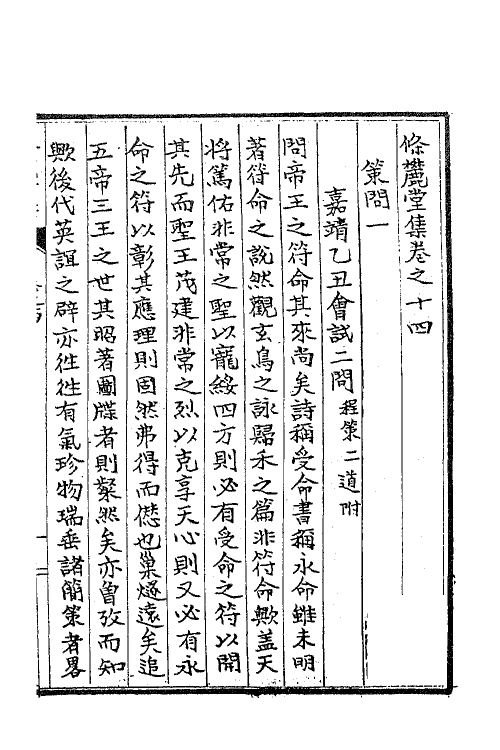 條麓堂集卷之十四
策問一
嘉靖乙丑會試二問程策二道附
問帝王之符命其來尚矣詩稱受命書稱永命雖未明
著符命之說然觀玄鳥之詠歸禾之篇非符命歟蓋天
將篤佑非常之聖以寵綏四方則必有受命之符以開
其先而聖王茂建非常之烈以克享天心則又必有永
命之符以彰其應理則固然弗得而僭也巢燧遠矣追
五帝三王之世其昭著圖牒者則粲然矣亦曾攷而知
歟後代英誼之辟亦徃徃有氣珍物瑞垂諸簡策者畧